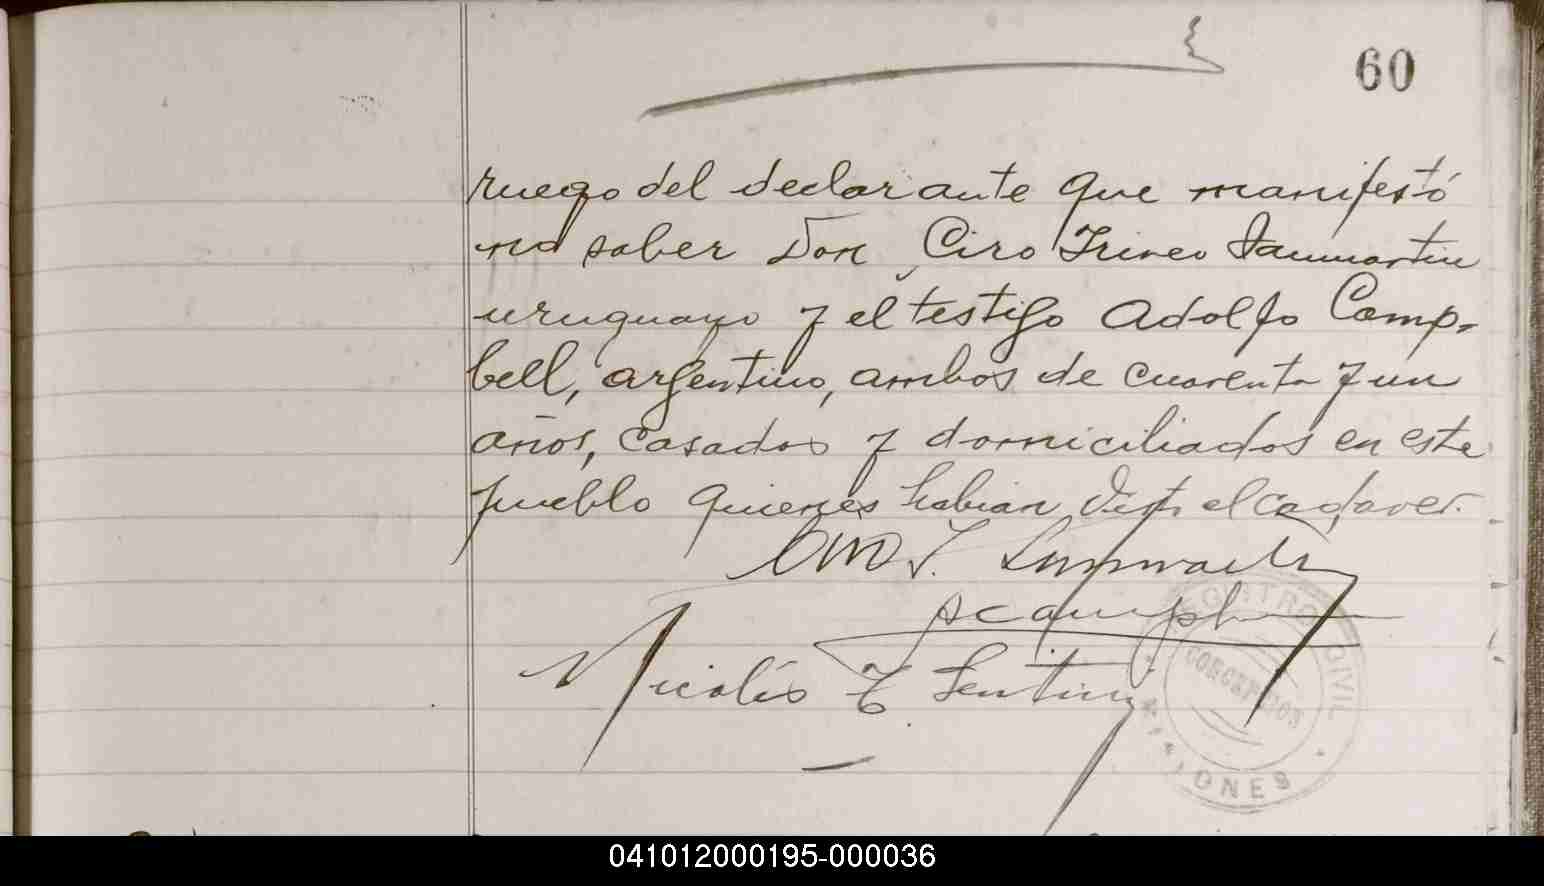 60
ruego del declarante que manifestó
no saber Don Ciro Irineo Sanmartin
uruguayo y el testigo Adolfo Camp-
bell, argentino, ambos de cuarenta y un
años, casados y domiciliados en este
pueblo quienes habian visto el cadaver.
Ciro I. Sanmartin
A Campbell
Nicolás
REGISTRO CIVIL
CONCEPCION
MISIONES
041012000195-000036